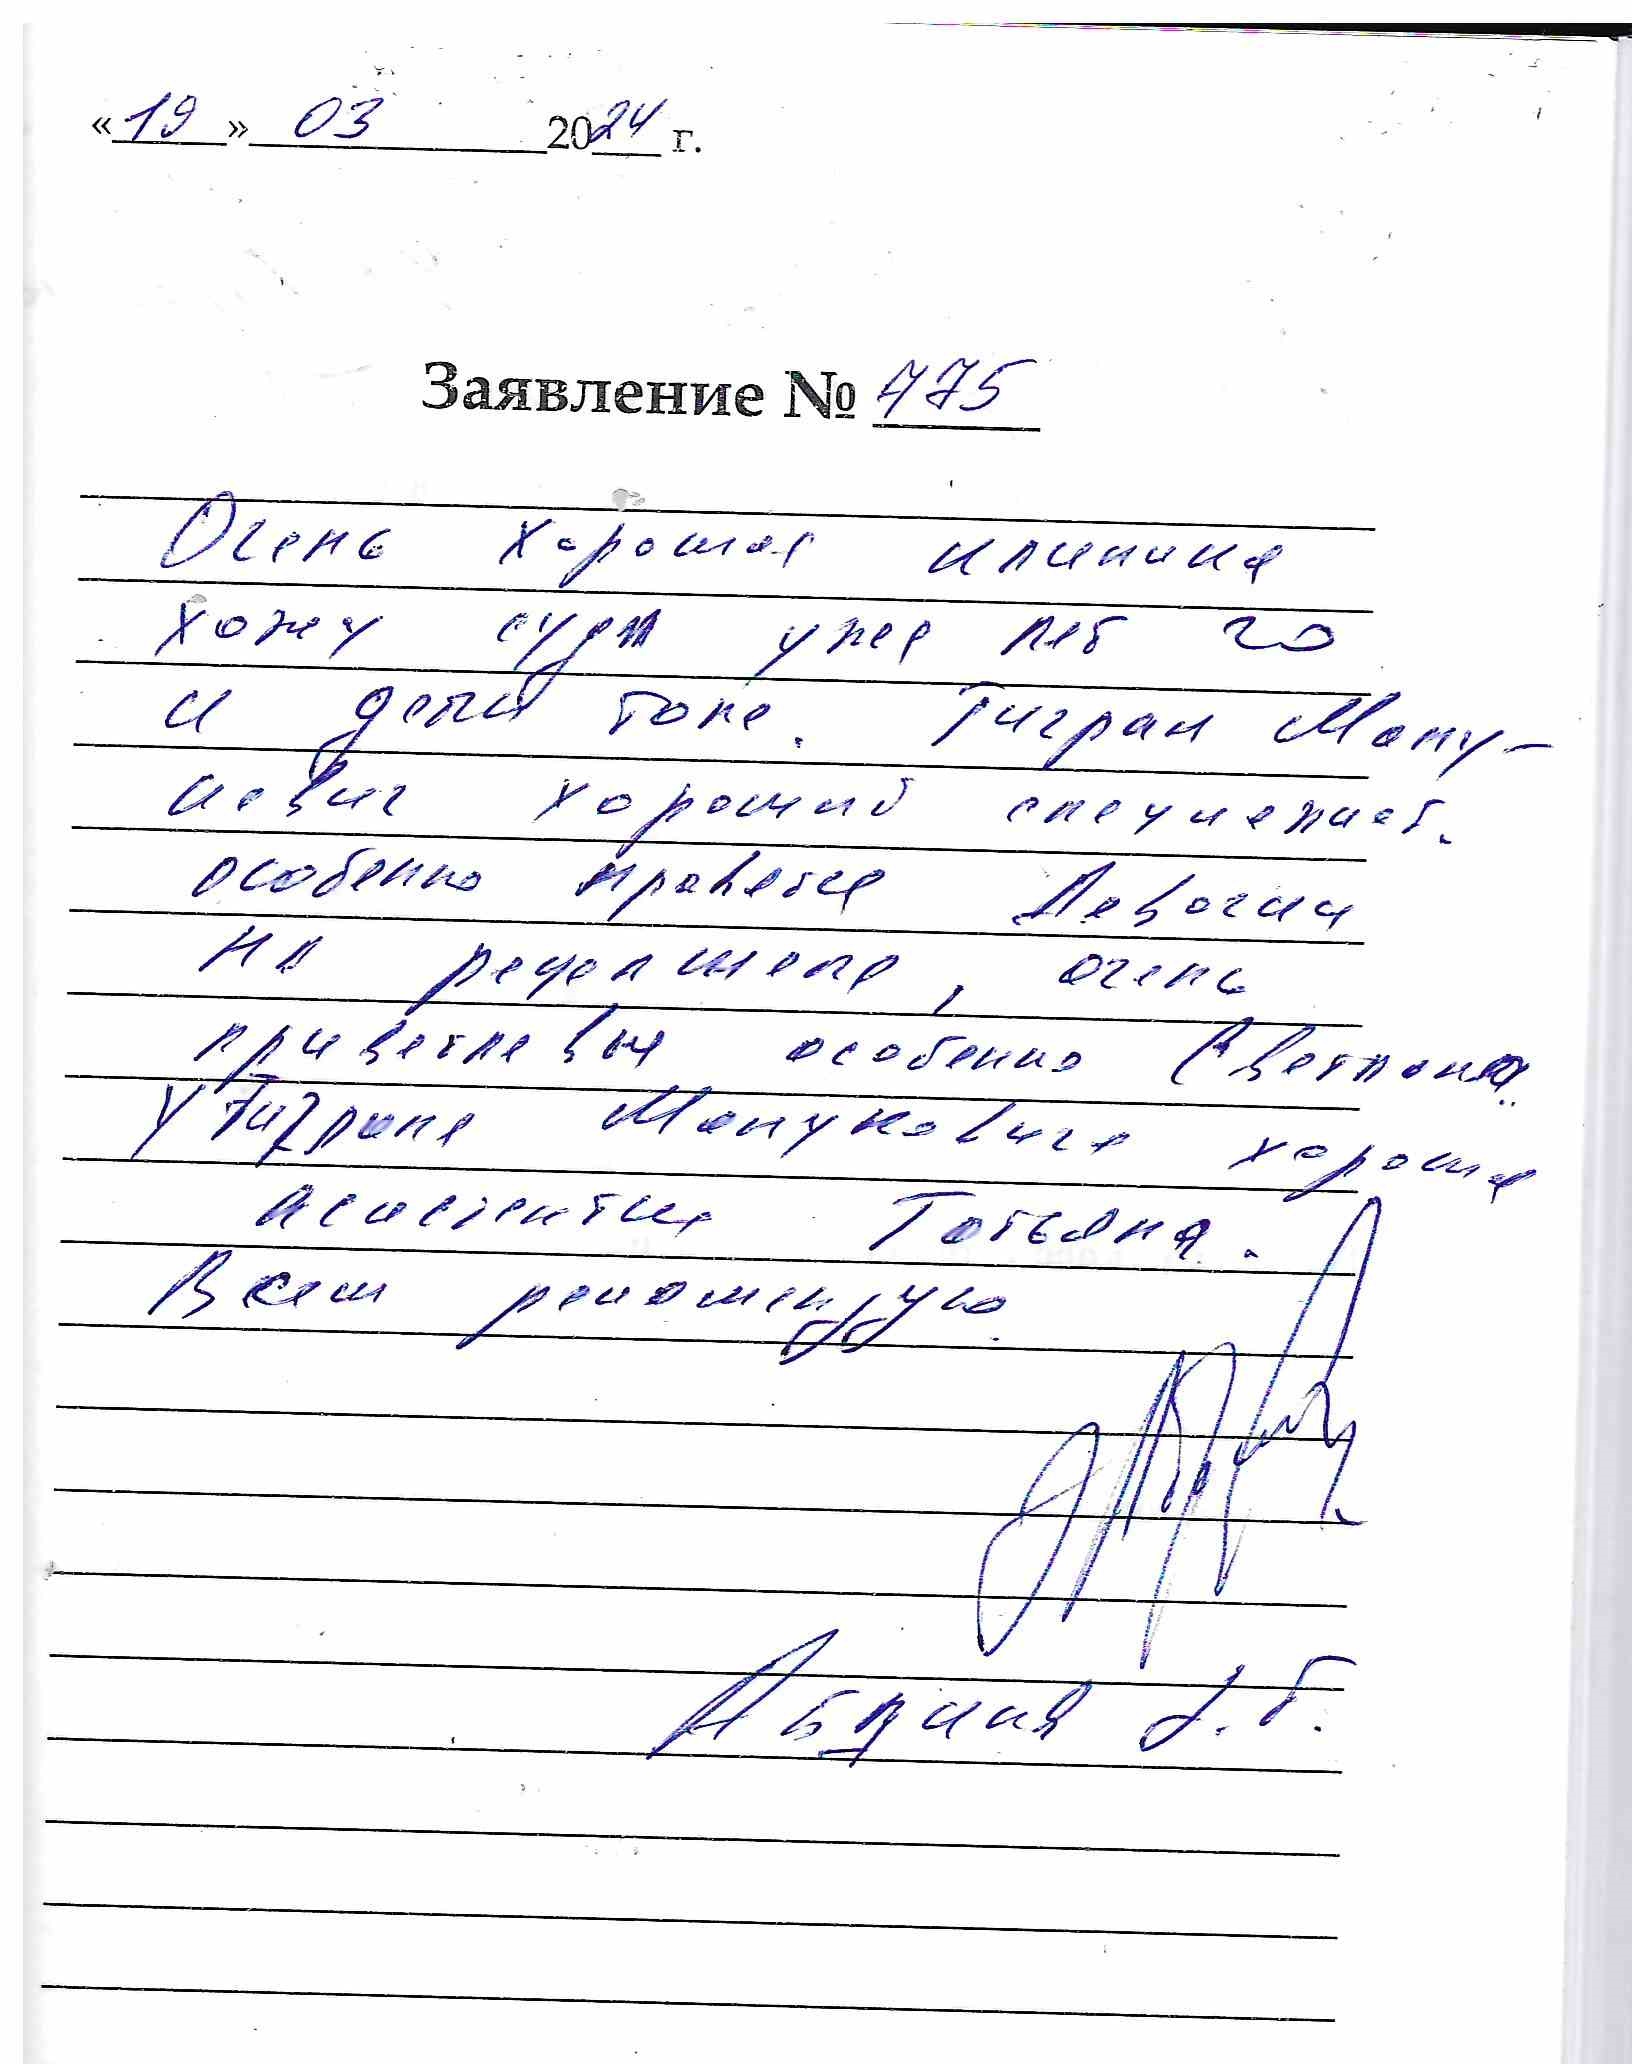 « 19 » 03 2024 г.
Заявление № 475
Очень хорошая клиника
хожу суда уже лет 20
и дети тоже. Тигран Ману-
кович хороший специалист.
особенно нравятся Девочки
на рецепшене, очень
приветлевые особенно Светлана
У Тиграна Мануковича хорошая
асистентка Татьяна.
Всем рекомендую.